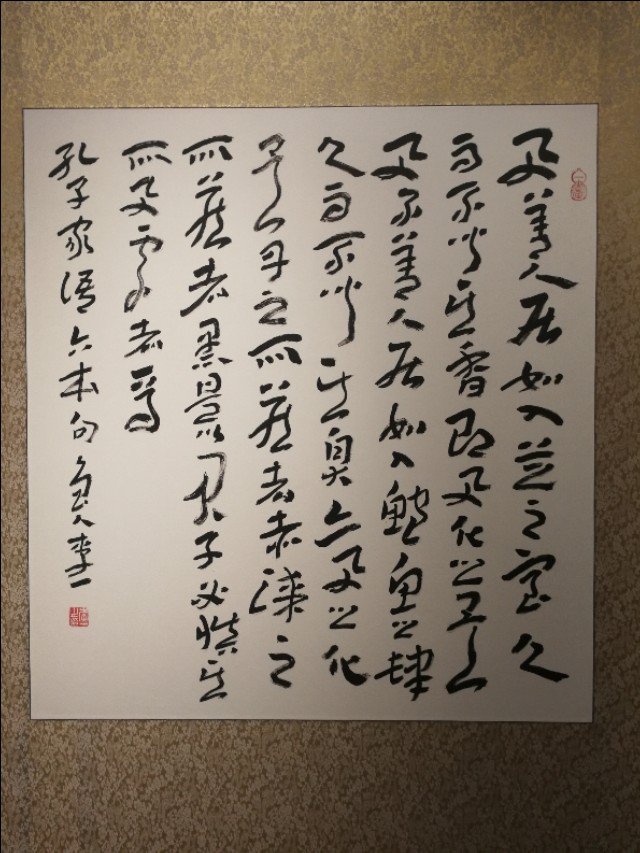 与善人居如入芝之室久
而不闻其香即与化之矣
与不善人居如入鲍鱼之肆
久而不闻其臭亦与之化
矣丹之所藏者赤漆之
所藏者黑是以君子必慎其
所与处者焉
孔子家语六本句 李一